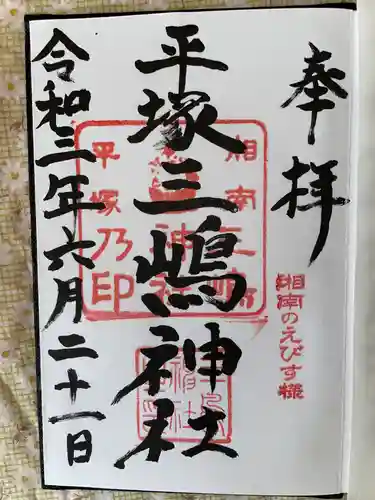 奉拝
湘南のえびす様
平塚三嶋神社
平塚乃印
令和三年六月二十一日